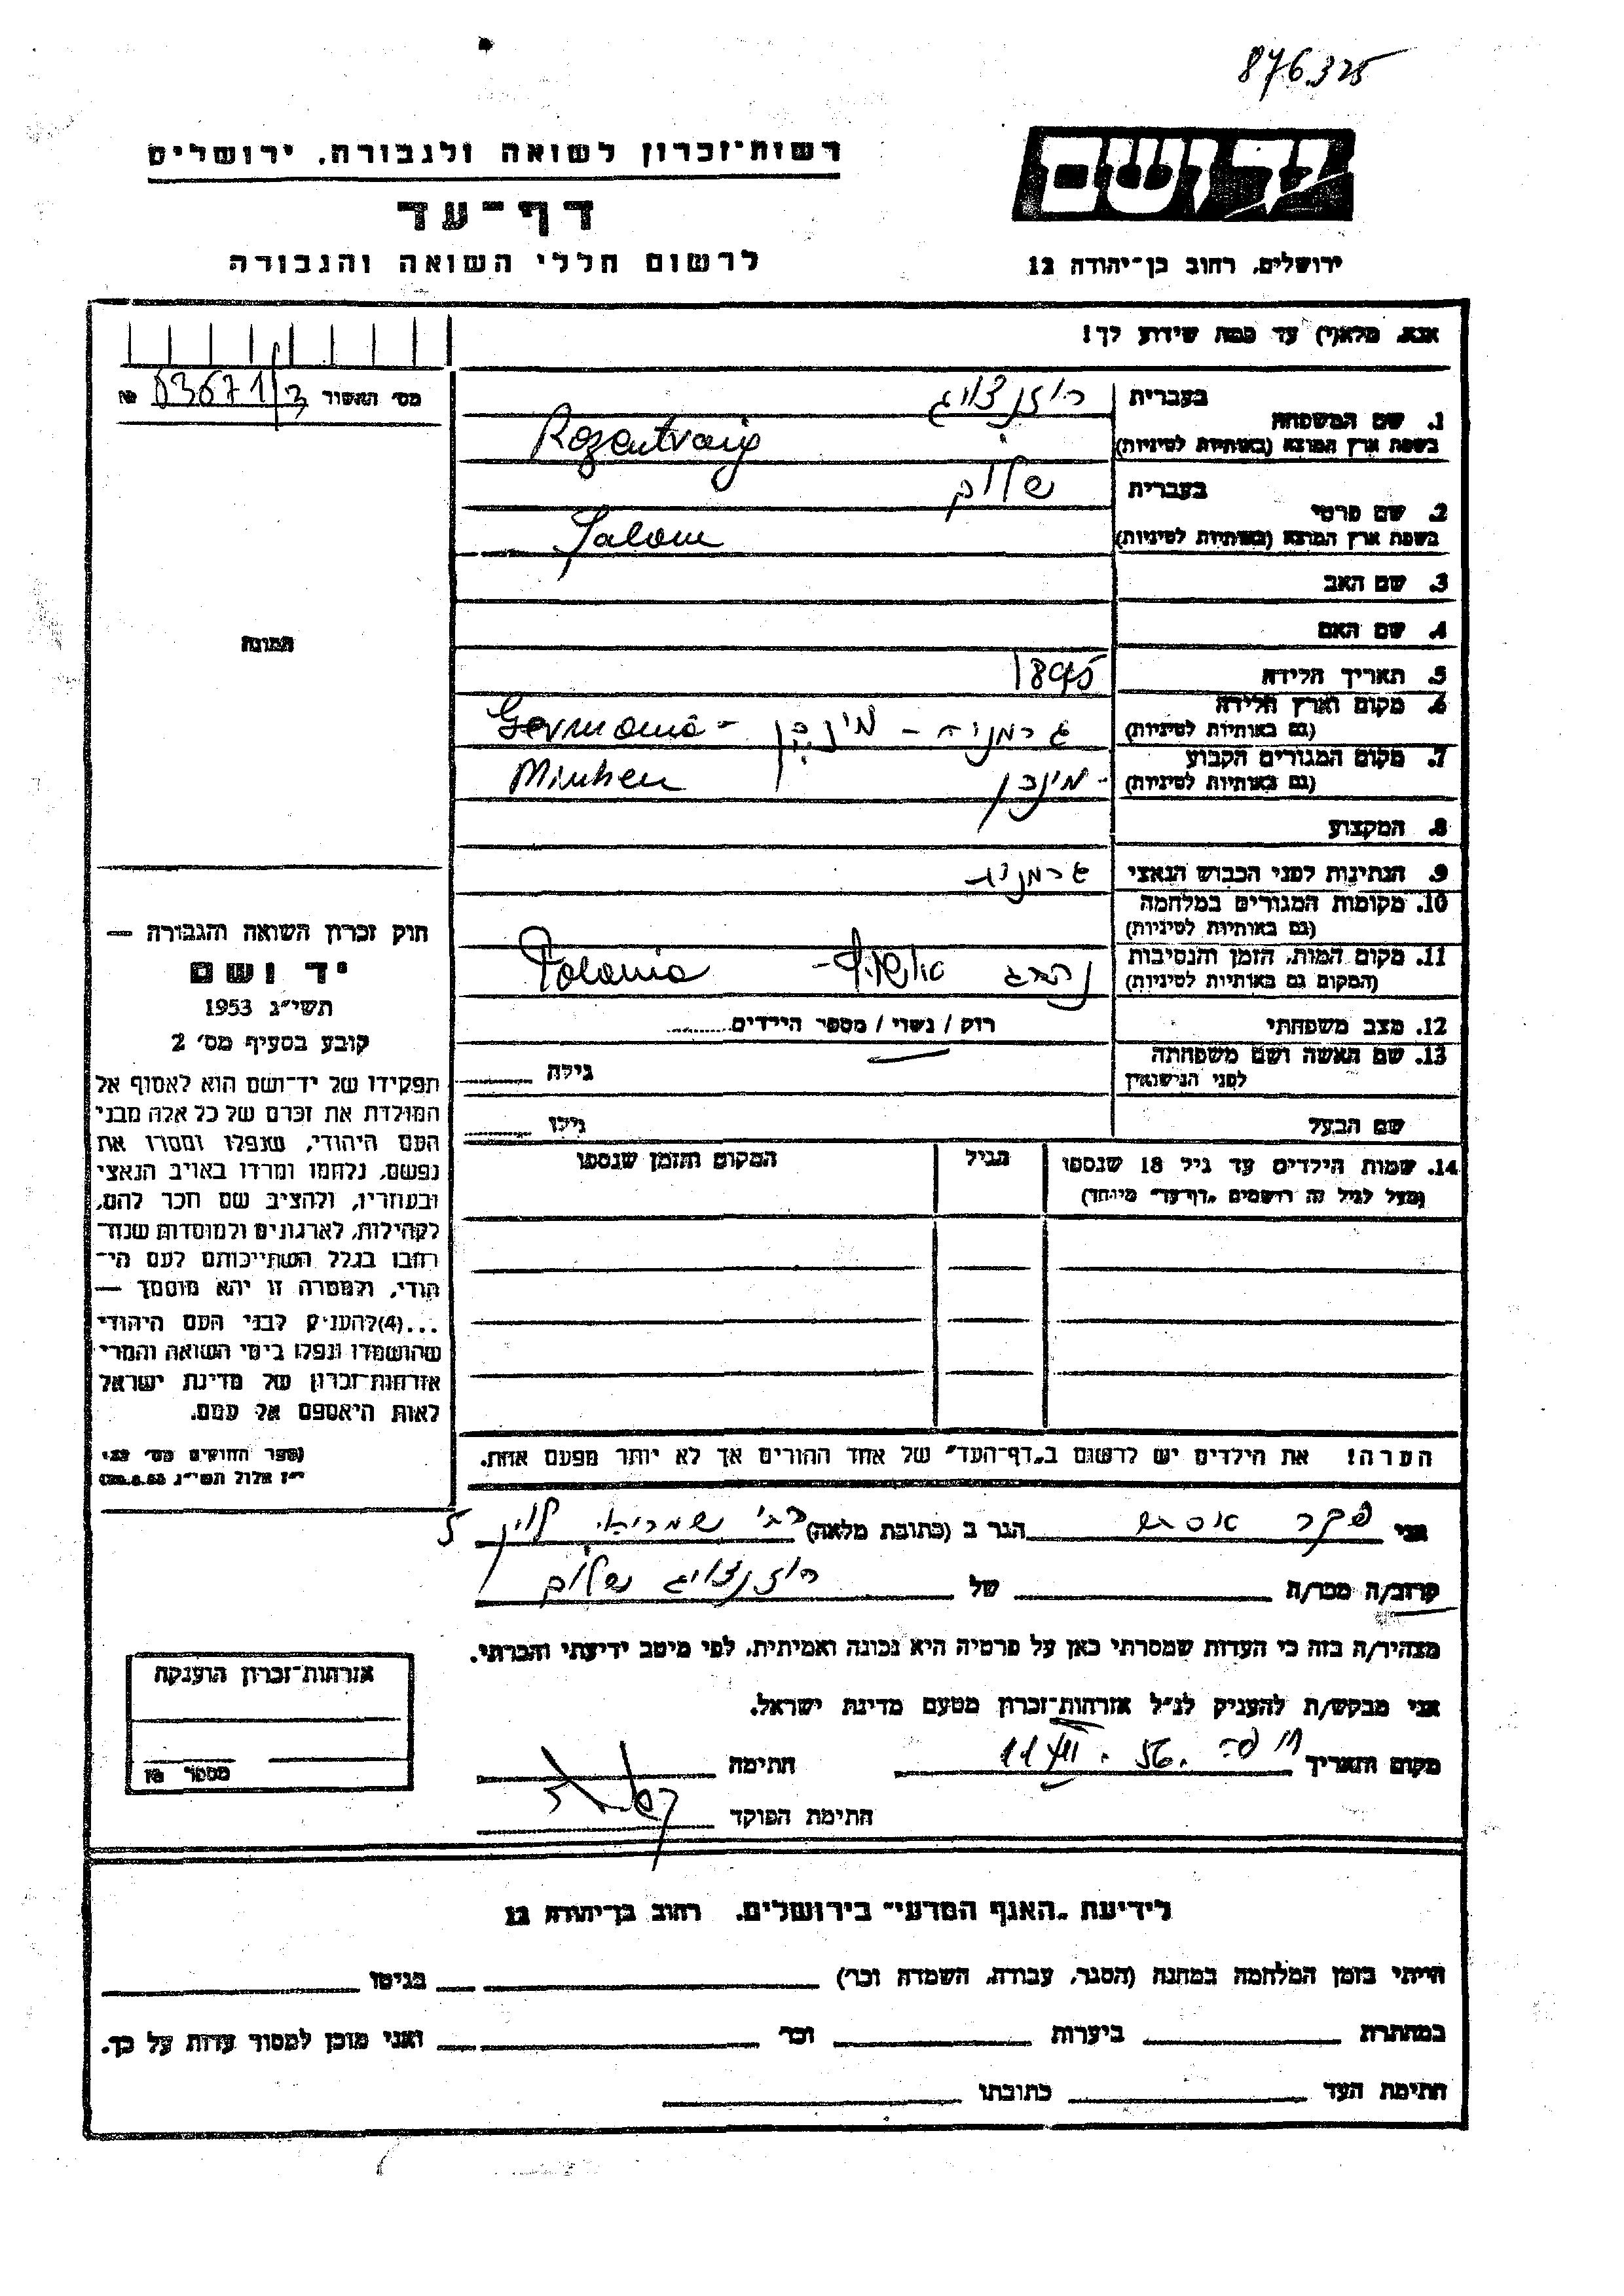 876.325
רשות־זכרון לשואה ולגבורה, ירושלים
דף־עד
לרשום חללי השואה והגבורה
יד ושם
ירושלים, רחוב בן־יהודה 12
אנא, מלא(י) עד כמה שידוע לך!
מס׳ האשור № 03671/3
1. שם המשפחה
בעברית רוזנצויג
בשפת ארץ המוצא (באותיות לטיניות) Rozentvaig
2. שם פרטי
בעברית שלום
בשפת ארץ המוצא (באותיות לטיניות) Salom
3. שם האב
4. שם האם
5. תאריך הלידה 1895
6. מקום וארץ הלידה גרמניה - מינכן - Germania
(גם באותיות לטיניות)
7. מקום המגורים הקבוע מינכן - Minhen
(גם באותיות לטיניות)
8. המקצוע
9. הנתינות לפני הכבוש הנאצי
10. מקומות המגורים במלחמה
(גם באותיות לטיניות)
11. מקום המות, הזמן והנסיבות נהרג Polonia
(המקום גם באותיות לטיניות)
12. מצב משפחתי רווק / נשוי / מספר הילדים
13. שם האשה ושם משפחתה
לפני הנישואין גילה
שם הבעל גילו
14. שמות הילדים עד גיל 18 שנספו הגיל המקום והזמן שנספו
(מעל לגיל זה רושמים „דף־עד״ מיוחד)
הערה! את הילדים יש לרשום ב„דף־העד״ של אחד ההורים אך לא יותר מפעם אחת.
תמונה
חוק זכרון השואה והגבורה —
יד ושם
תשי״ג 1953
קובע בסעיף מס׳ 2
תפקידו של יד־ושם הוא לאסוף אל
המולדת את זכרם של כל אלה מבני
העם היהודי, שנפלו ומסרו את
נפשם, נלחמו ומרדו באויב הנאצי
ובעוזריו, ולהציב שם וזכר להם,
לקהילות, לארגונים ולמוסדות שנח־
רבו בגלל השתייכותם לעם הי־
הודי, ולמטרה זו יהא מוסמך —
...(4)להעניק לבני העם היהודי
שהושמדו ונפלו בימי השואה והמרי
אזרחות־זכרון של מדינת ישראל
לאות היאספם אל עמם.
(ספר החוקים מס׳ 132,
י״ז אלול תשי״ג 28.8.53)
אני פקר אסתר הגר ב (כתובת מלאה) רבי שמריהו לוין 5
קרוב/ה מכר/ה של רוזנצויג שלום
מצהיר/ה בזה כי העדות שמסרתי כאן על פרטיה היא נכונה ואמיתית, לפי מיטב ידיעתי והכרתי.
אני מבקש/ת להעניק לנ״ל אזרחות־זכרון מטעם מדינת ישראל.
מקום ותאריך חיפה 11 56 חתימה
חתימת הפוקד
אזרחות־זכרון הוענקה
מספר תז
לידיעת „האגף המדעי״ בירושלים, רחוב בן־יהודה 12
הייתי בזמן המלחמה במחנה (הסגר, עבודה, השמדה וכו׳) בגיטו
במחתרת ביערות וכו׳ ואני מוכן למסור עדות על כך.
חתימת העד כתובתו